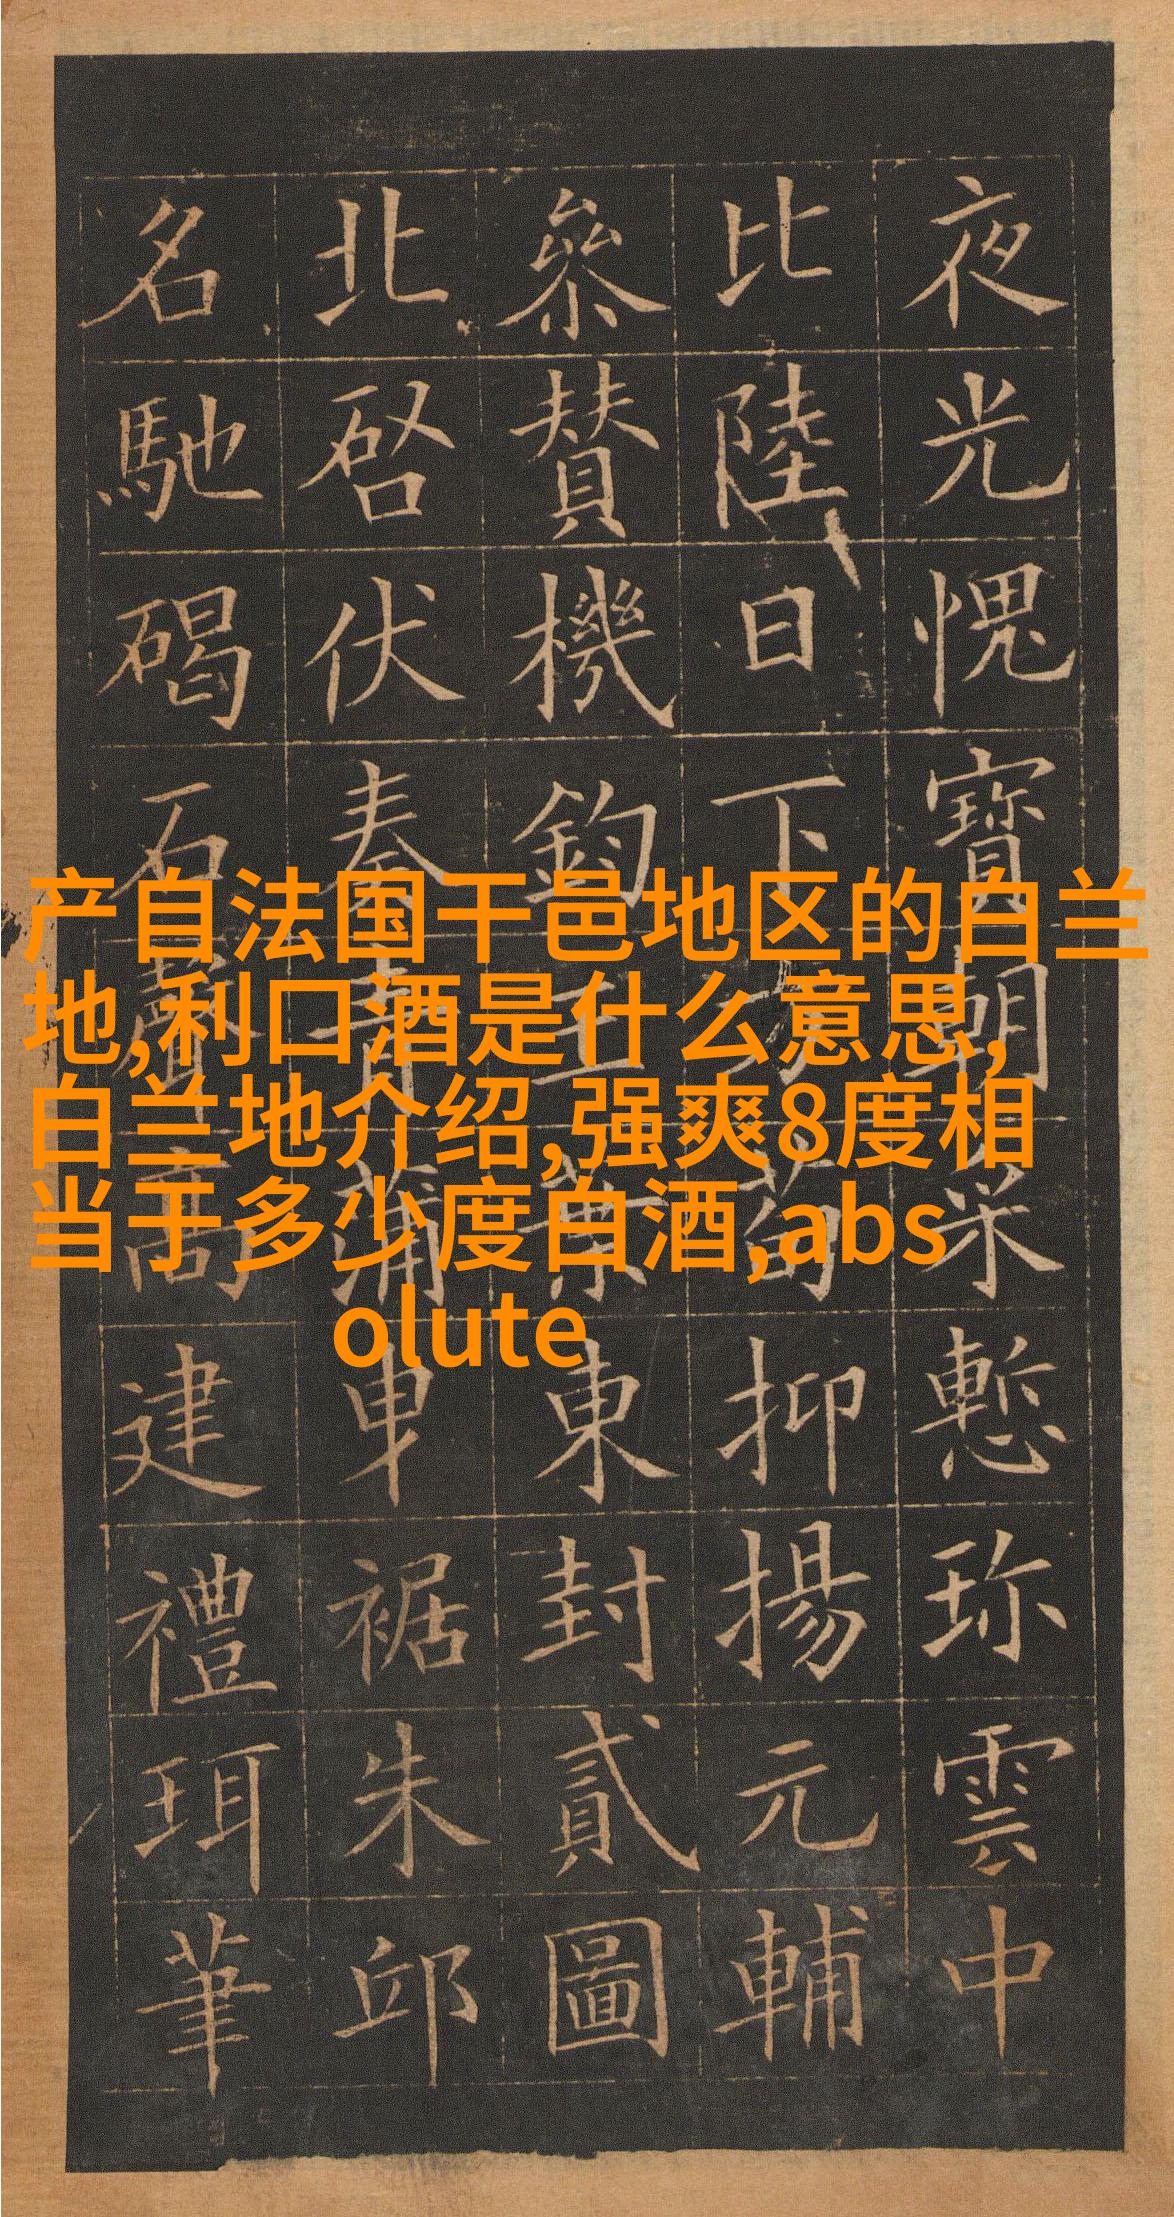 夜光愧寶朝采慙珎雲中
比陸日下荀抑揚元輔
參賛機鈞東封貳圖
北啓伏奏青蒲曳裾朱邱
名馳碣石聲高建禮珥筆
产自法国干邑地区的白兰
地,利口酒是什么意思,
白兰地介绍,强爽8度相
当于多少度白酒,abs
olute